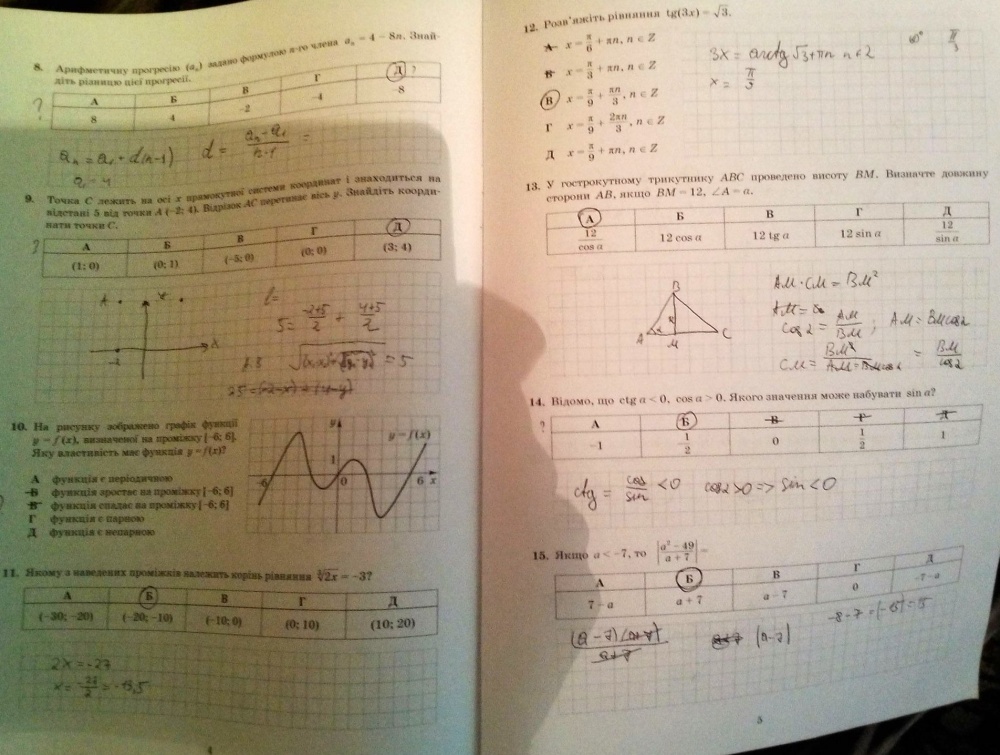 8. Арифметичну прогресію (aₙ) задано формулою n-го члена aₙ = 4 – 8n. Знай-
діть різницю цієї прогресії.
А Б В Г Д ?
8 4 –2 –4 –8
?
aₙ = a₁ + d(n-1) d = (aₙ - a₁)/(n-1) =
9. Точка C лежить на осі x прямокутної системи координат і знаходиться на
відстані 5 від точки A (–2; 4). Відрізок AC перетинає вісь y. Знайдіть коорди-
нати точки C.
? А Б В Г Д
(1; 0) (0; 1) (–5; 0) (0; 0) (3; 4)
A
X
-2
5 = (-2+5)/2 + (4+5)/2
= 5
10. На рисунку зображено графік функції
y = f(x), визначеної на проміжку [–6; 6].
Яку властивість має функція y = f(x)?
А функція є періодичною
В функція зростає на проміжку [–6; 6]
В функція спадає на проміжку [–6; 6]
Г функція є парною
Д функція є непарною
y y = f(x)
1
–6 0 6 x
11. Якому з наведених проміжків належить корінь рівняння ∛2x = –3?
А Б В Г Д
(–30; –20) (–20; –10) (–10; 0) (0; 10) (10; 20)
2x = -27
x = -27/2 = -13,5
4
12. Розв'яжіть рівняння tg(3x) = √3.
А x = π/6 + πn, n ∈ Z
Б x = π/3 + πn, n ∈ Z
В x = π/9 + πn/3, n ∈ Z
Г x = π/9 + 2πn/3, n ∈ Z
Д x = π/9 + πn, n ∈ Z
60° π/3
3x = arctg √3 + πn n ∈ Z
x = π/3
13. У гострокутному трикутнику ABC проведено висоту BM. Визначте довжину
сторони AB, якщо BM = 12, ∠A = α.
А Б В Г Д
12/cos α 12 cos α 12 tg α 12 sin α 12/sin α
B
A M C
AM · CM = BM²
cos α = AM/BM ; AM = BM cos α
CM = BM²/(AM = BM cos α) = BM/cos α
14. Відомо, що ctg α < 0, cos α > 0. Якого значення може набувати sin α?
? А Б В Г Д
–1 1/2 0 1/2 1
ctg = cos/sin < 0 cos α > 0 => sin < 0
15. Якщо a < –7, то |(a² – 49)/(a + 7)| =
А Б В Г Д
7 – a a + 7 a – 7 0 –7 – a
(a-7)(a+7)/(a+7) |a-7|
-8-7 = |-15| = 15
5